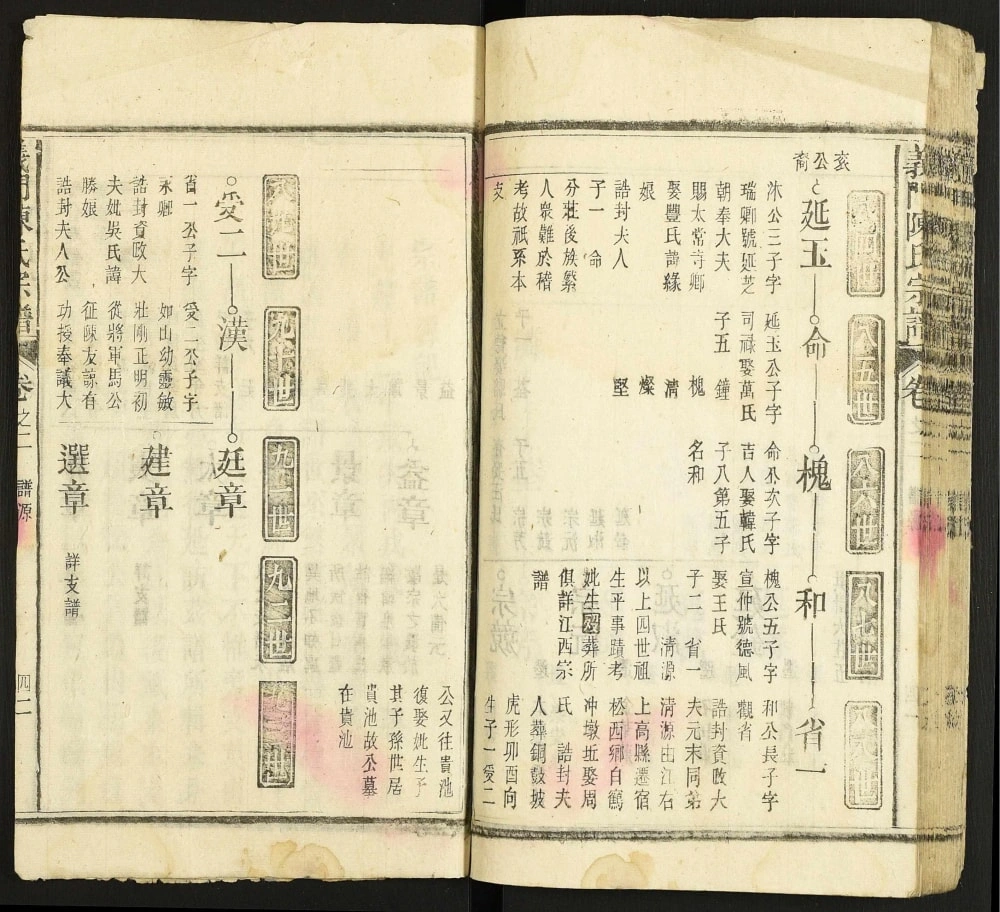 義門陳氏宗譜
衮公裔
八四世
八五世
八六世
八七世
八八世
延玉
命
槐
和
省一
沐公三子字
瑞卿號延芝
朝奉大夫
賜太常寺卿
娶豐氏諱緣
娘
誥封夫人
子一　命
分莊後族繁
人衆難於稽
考故祇系本
支
延玉公子字
司祿娶萬氏
子五　鐘
槐　清
燦
堅
命公次子字
吉人娶韓氏
子八第五子
名和
槐公五子字
宣仲號德風
娶王氏
子二　省一
清源
以上四世祖
生平事蹟考
妣生歿葬所
俱詳江西宗
譜
和公長子字
觀省
誥封資政大
夫元末同弟
清源由江右
上高縣遷宿
松西鄉白鶴
冲墩坵娶周
氏　誥封夫
人葬銅鼓坡
虎形卯酉向
生子一愛二
公又往貴池
復娶妣生子
其子孫世居
貴池故公墓
在貴池
八九世
九十世
九一世
九二世
愛二
漢一
廷章
建章
選章
省一公子字
永卿
誥封資政大
夫妣吳氏諱
勝娘
誥封夫人公
愛二公子字
如山幼靈敏
壯剛正明初
從將軍馬公
征陳友諒有
功授奉議大
詳支譜
義門陳氏宗譜
卷之二
譜源
四二